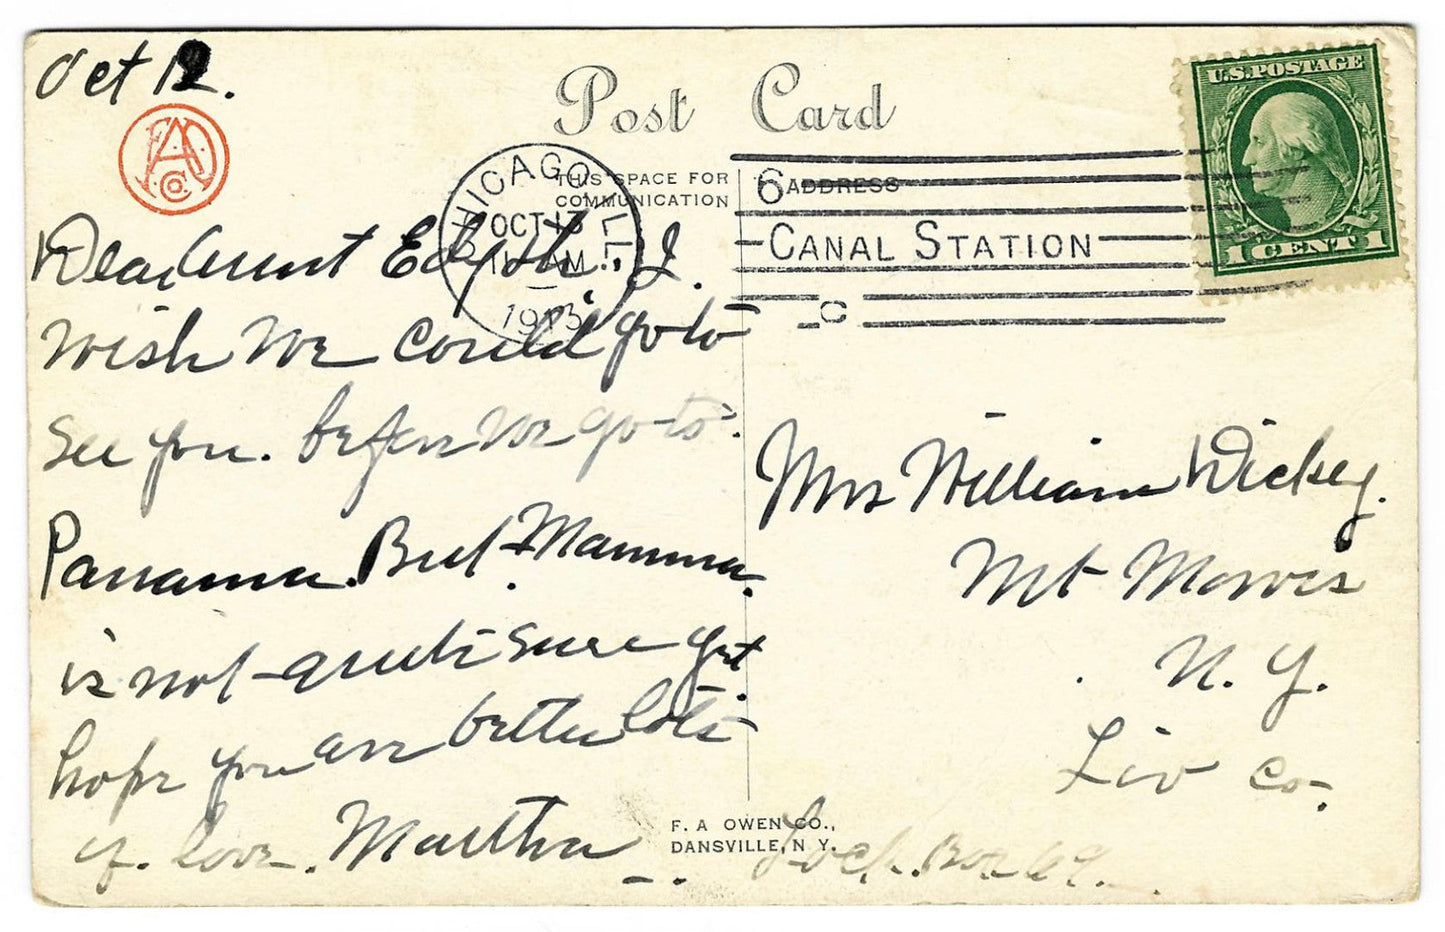 Oct 12.
Post Card
U.S. POSTAGE
1 CENT 1
CHICAGO, ILL.
OCT 13
11 AM
1913
THIS SPACE FOR
COMMUNICATION
ADDRESS
6
CANAL STATION
C
Dear Aunt Edyth. I.
wish we could go to
see you. before we go to.
Panama. But. Mamma.
is not quite sure yet.
hope you are better lots
of. love. Martha
Mrs William Dickey.
Mt Morris
N. Y.
Liv Co.
Lock. Box 69.
F. A OWEN CO.,
DANSVILLE, N. Y.